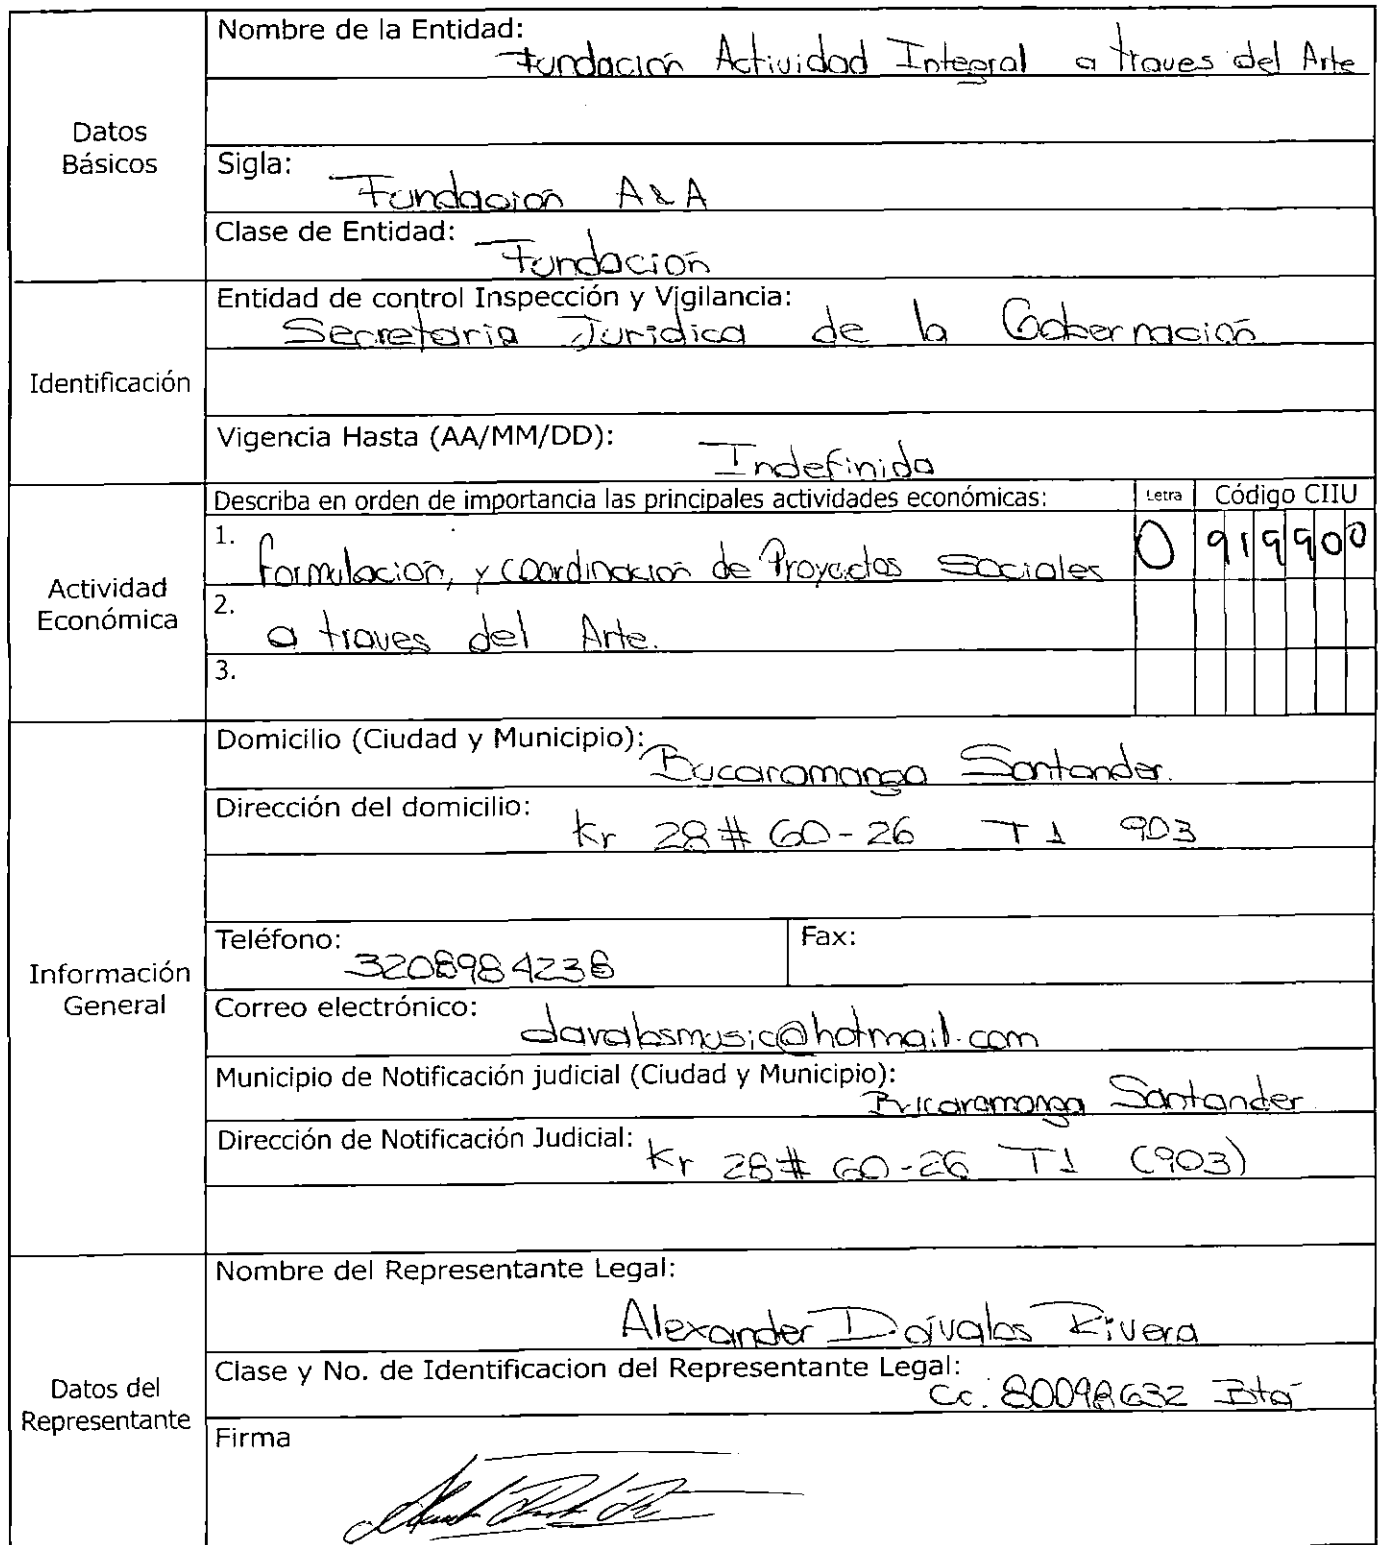 Datos Básicos
Nombre de la Entidad:
Fundación Actividad Integral a traves del Arte
Sigla:
Fundación A&A
Clase de Entidad:
Fundación
Identificación
Entidad de control Inspección y Vigilancia:
Secretaria Juridica de la Gobernación
Vigencia Hasta (AA/MM/DD):
Indefinida
Actividad Económica
Describa en orden de importancia las principales actividades económicas: Letra Código CIIU
1. formulación, y coordinación de Proyectos Sociales O 919900
2. a traves del Arte.
3.
Información General
Domicilio (Ciudad y Municipio):
Bucaramanga Santander.
Dirección del domicilio:
kr 28 # 60-26 T 1 903
Teléfono: 3208984238 Fax:
Correo electrónico:
davalosmusic@hotmail.com
Municipio de Notificación judicial (Ciudad y Municipio):
Bucaramanga Santander
Dirección de Notificación Judicial: Kr 28 # 60-26 T1 (903)
Datos del Representante
Nombre del Representante Legal:
Alexander Dávalos Rivera
Clase y No. de Identificacion del Representante Legal:
Cc. 80098632 Btá
Firma